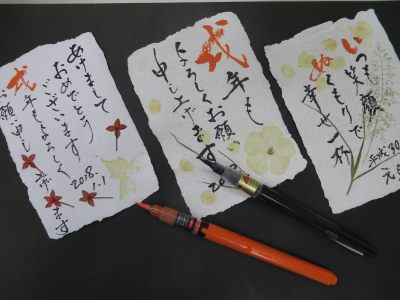 あけまして
おめでとう
ございます
戌年もよろしく
お願い申し
ます
2018.1.1
戌年も
よろしくお願い
申し上げます
いつも笑顔
ぬくもりで
幸せ一杯
平成30
元旦